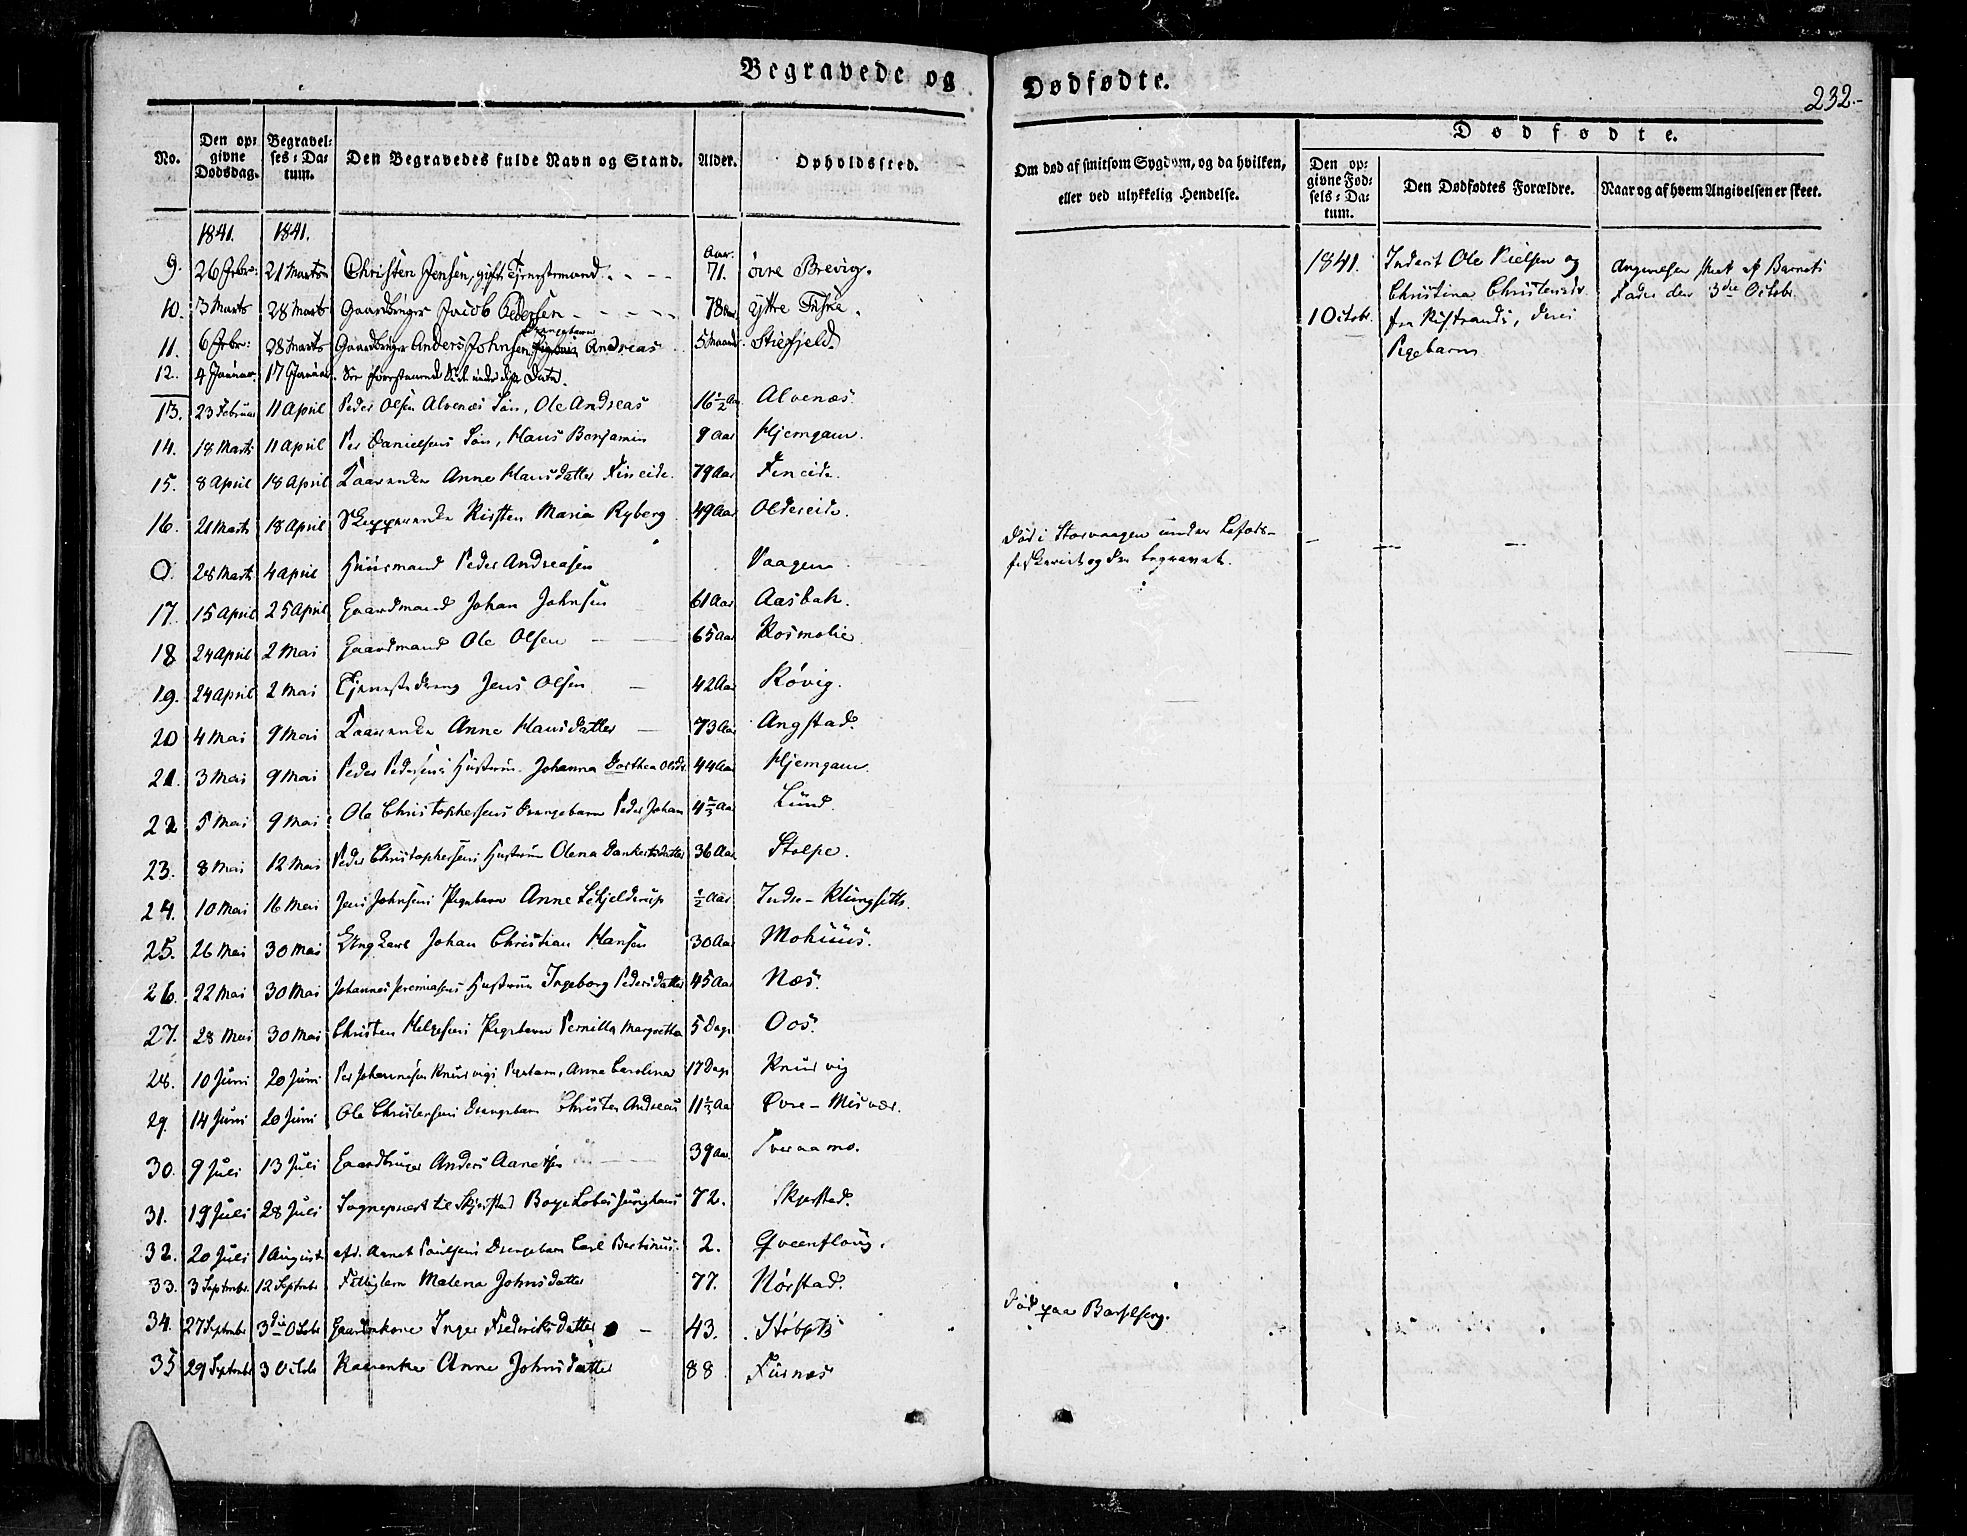 Begravede og Dødfødte.
232.-
No.
Den opgivne Dødsdag.
Begravelses-Datum.
Den Begravedes fulde Navn og Stand.
Alder.
Opholdssted.
Om død af smitsom Sygdom, og da hvilken,
eller ved ulykkelig Hendelse.
Dødfødte.
Den opgivne Fødsels-Datum.
Den Dødfødtes Forældre.
Naar og af hvem Angivelsen er skeet.
1841. 1841.
9. 26 Febr: 21 Marts Christen Jensen, gift Tjenestemand. Aar. 71. övre Brevig.
10. 3 Marts 28 Marts Gaardbruger Jacob Pedersen 78 Aar ÿttre
11. 6 Febr: 28 Marts Gaardbruger Anders Johnsen Drengebarn Andreas 5 Maaned Stiefjeld.
12. 4 Januar 17 Januar. See foranstaaende Side under Dato.
13. 23 Februar 11 April Peder Olsen Alvenæs Søn, Ole Andreas 16½ Aar Alvenæs.
14. 18 Marts 11 April Per Danielsens Søn, Hans Benjamin 9 Aar Hjemgam.
15. 8 April 18 April Kaarenke Anne Hansdatter Fineide. 79 Aar Fineide.
16. 21 Marts 18 April Skipperenke Kirsten Maria Ryberg 49 Aar Oldereide.
0. 28 Marts 4 April Huusmand Peder Andreasen Vaagen
Død i Storvaagen under Lofods-
fiskeriet og der begravet.
17. 15 April 25 April Gaardmand Johan Johnsen 61 Aar Aasbak.
18 24 April 2 Mai Gaardmand Ole Olsen 65 Aar Kosmolie
19. 24 April 2 Mai Tjenestedreng Jens Olsen 42 Aar Røvig.
20 4 Mai 9 Mai Kaarenke Anne Hansdatter 73 Aar Angstad.
21. 3 Mai 9 Mai Peder Pedersens Hustrue Johanna Dorthea Olsdr. 44 Aar Hjemgam.
22 5 Mai 9 Mai Ole Christophersens Drengebarn Peder Johan 4⅔ Aar Lund.
23. 8 Mai 12 Mai Peder Christophersens Hustrue Olena Dankertsdatter 36 Aar Stolpe.
24. 10 Mai 16 Mai Jens Johnsens Pigebarn Anne Schjelderup ½ Aar Indre-Klungsett.
25. 26 Mai 30 Mai Ungkarl Johan Christian Hansen 30 Aar Mohuus.
26. 22 Mai 30 Mai Johannes Jeremiasens Hustrue Ingeborg Pedersdatter 45 Aar Næs.
27. 28 Mai 30 Mai Christen Helgesens Pigebarn Pernilla Margretha 5 Dage Oos.
28. 10 Juni 20 Juni Per Johannesen Knurvigs Pigebarn, Anne Carolina 17 Dage Knurvig
29. 14 Juni 20 Juni Ole Christensens Drengebarn Christen Andreas 11⅓ Aar Øvre-Misvær.
30. 9 Juli 13 Juli Gaardbruger Anders Aanetsen 39 Aar. Tveraamo.
31. 19 Juli 28 Juli Sognepræst til Skjerstad Boye Lobes Junghans 72. Skjerstad.
32. 20 Juli 1 August afd. Aanet Poulsens Drengebarn Carl Bertinus. 2. Qveenfloug.
33. 3 Septembr. 12 Septembr Fattiglem Malena Johnsdatter 77. Nørstad.
34. 27 Septembr 3die Octobr Gaardmkone Inger Frederiksdatter 43.
Død paa Barselseng.
35 29 Septembr 3 Octobr Kaarenke Anne Johnsdatter 88 Furnæs
1841. 1 Octobr.
Inderst Ole Nielsen og
Christina Christensdr.
fra Kistrand, deres
Pigebarn
Angivelsen skeet af Barnets
Fader den 3die Octobr.